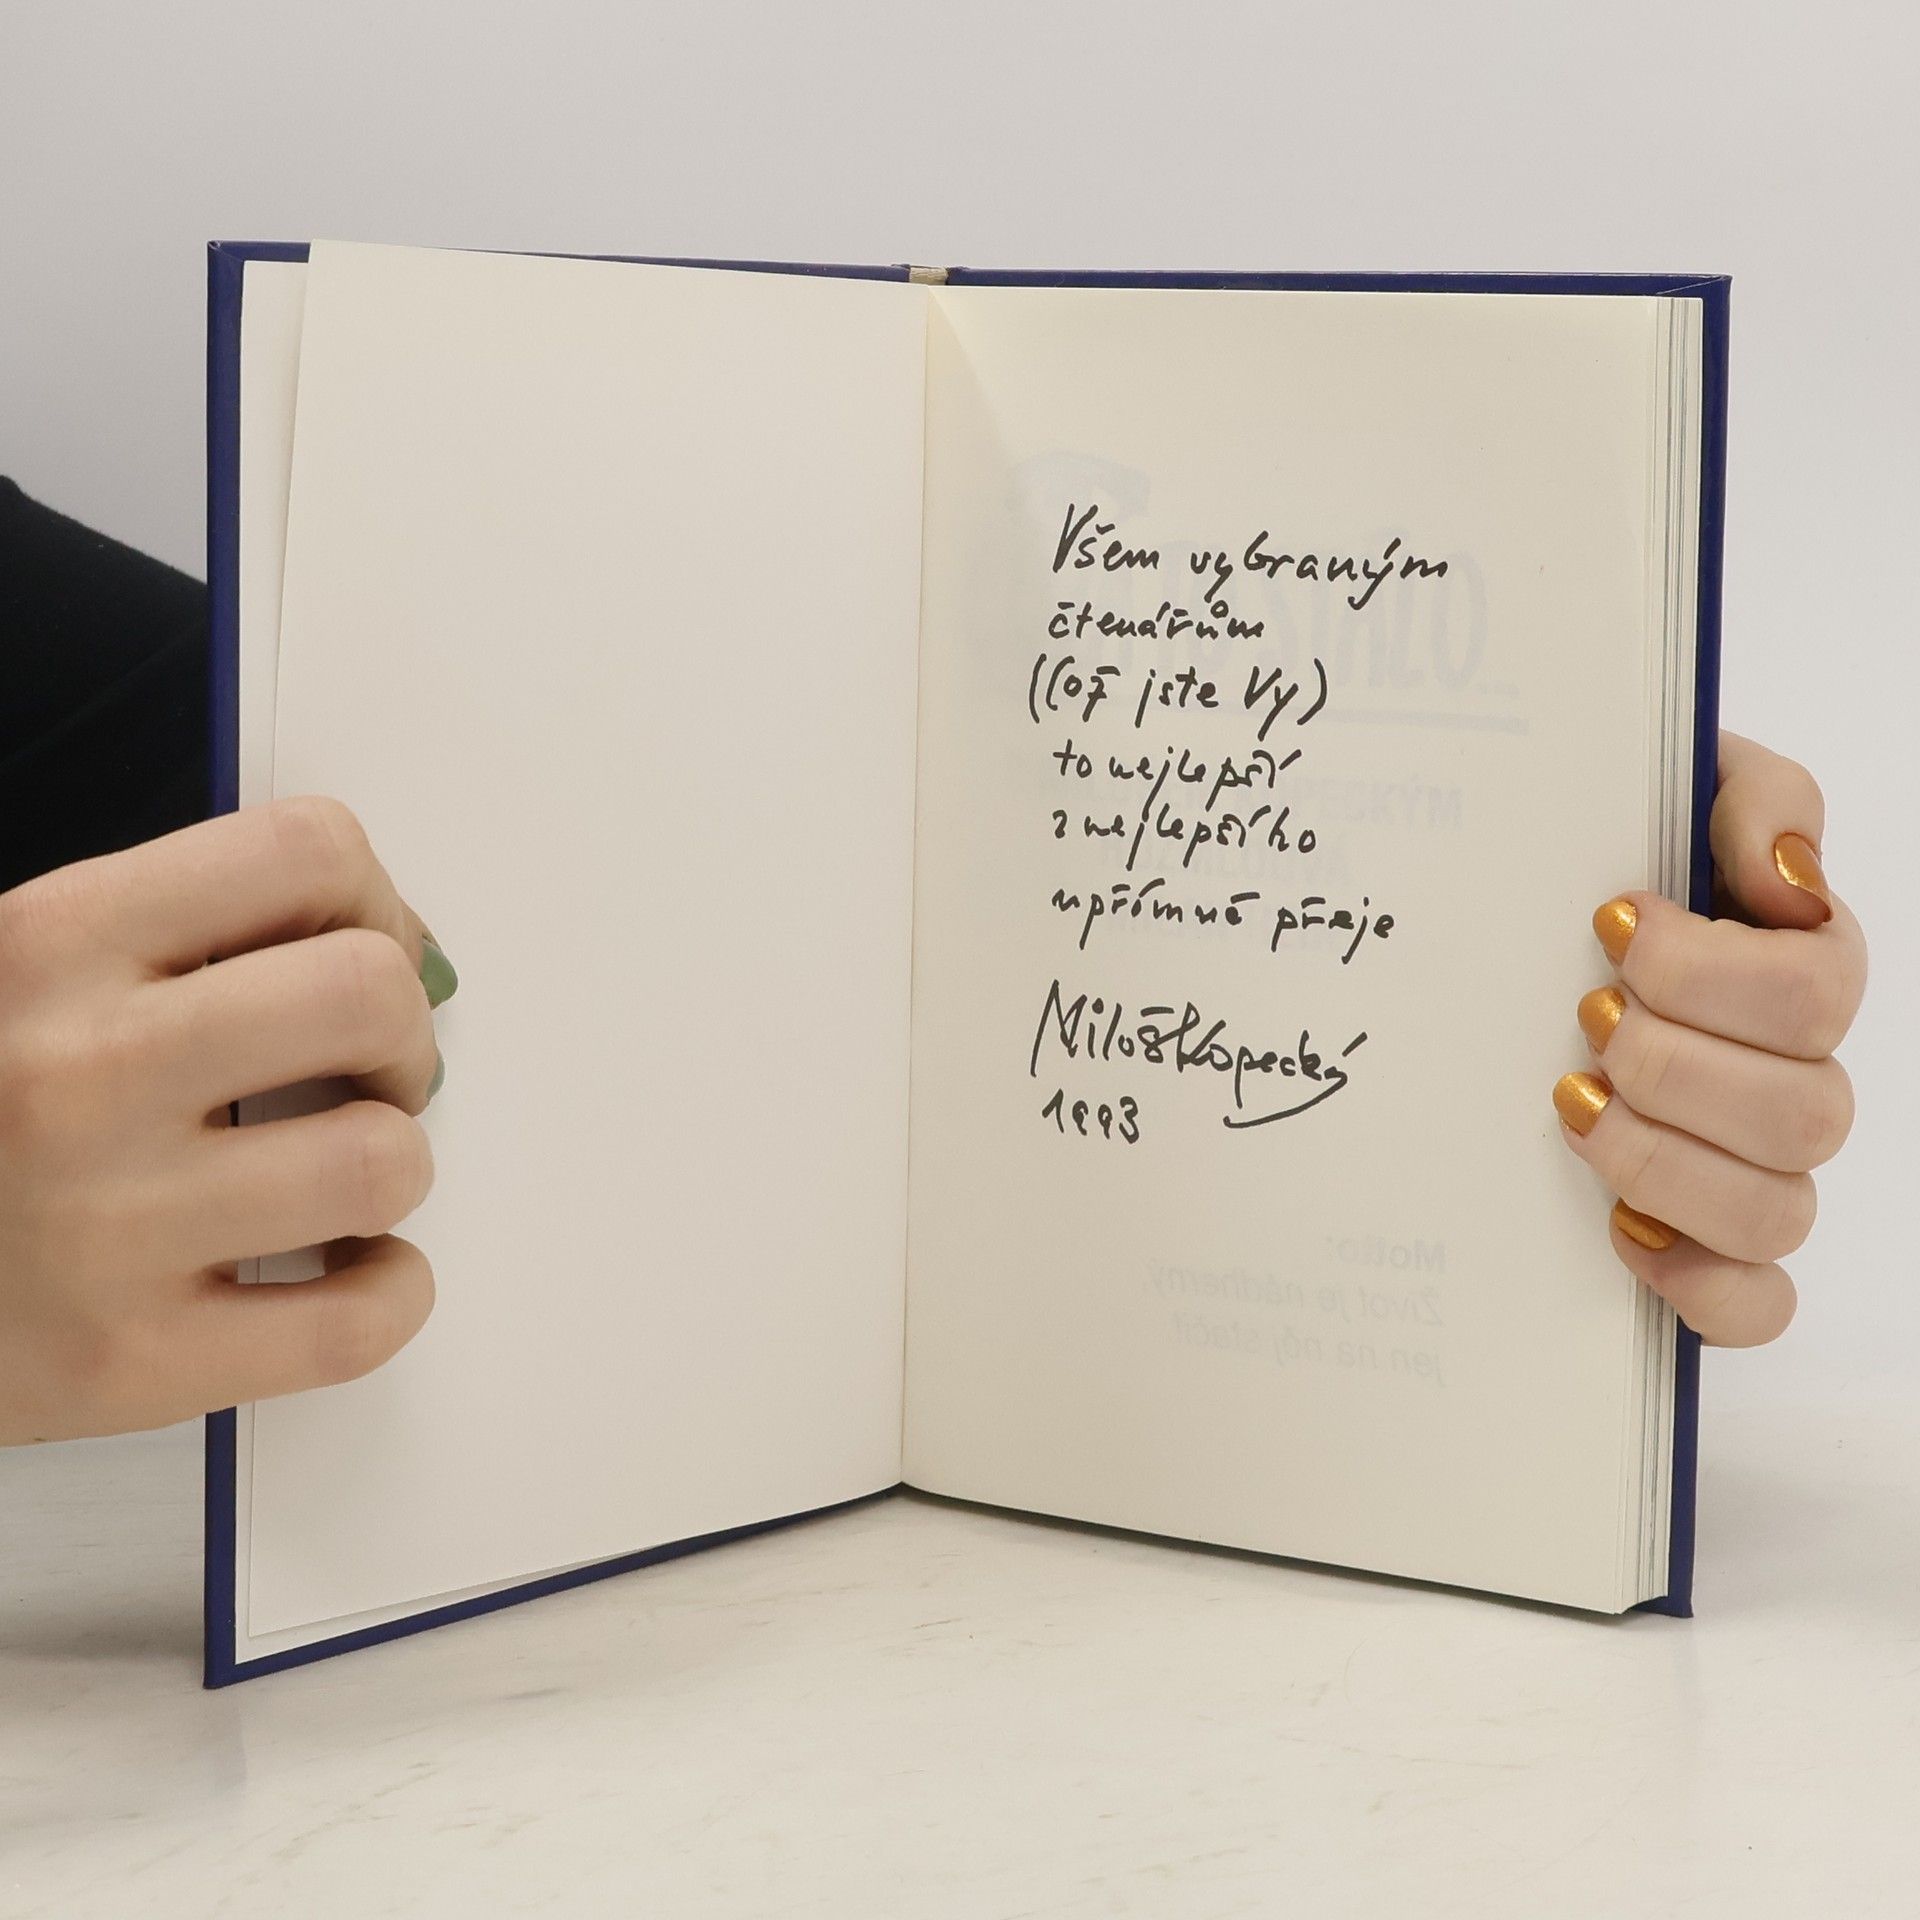 Všem vybraným
čtenářům
(Což jste Vy)
to nejlepší
z nejlepšího
upřímně přeje
Miloš Kopecký
1993
Motto:
Život je nádherný,
jen na něj stačit